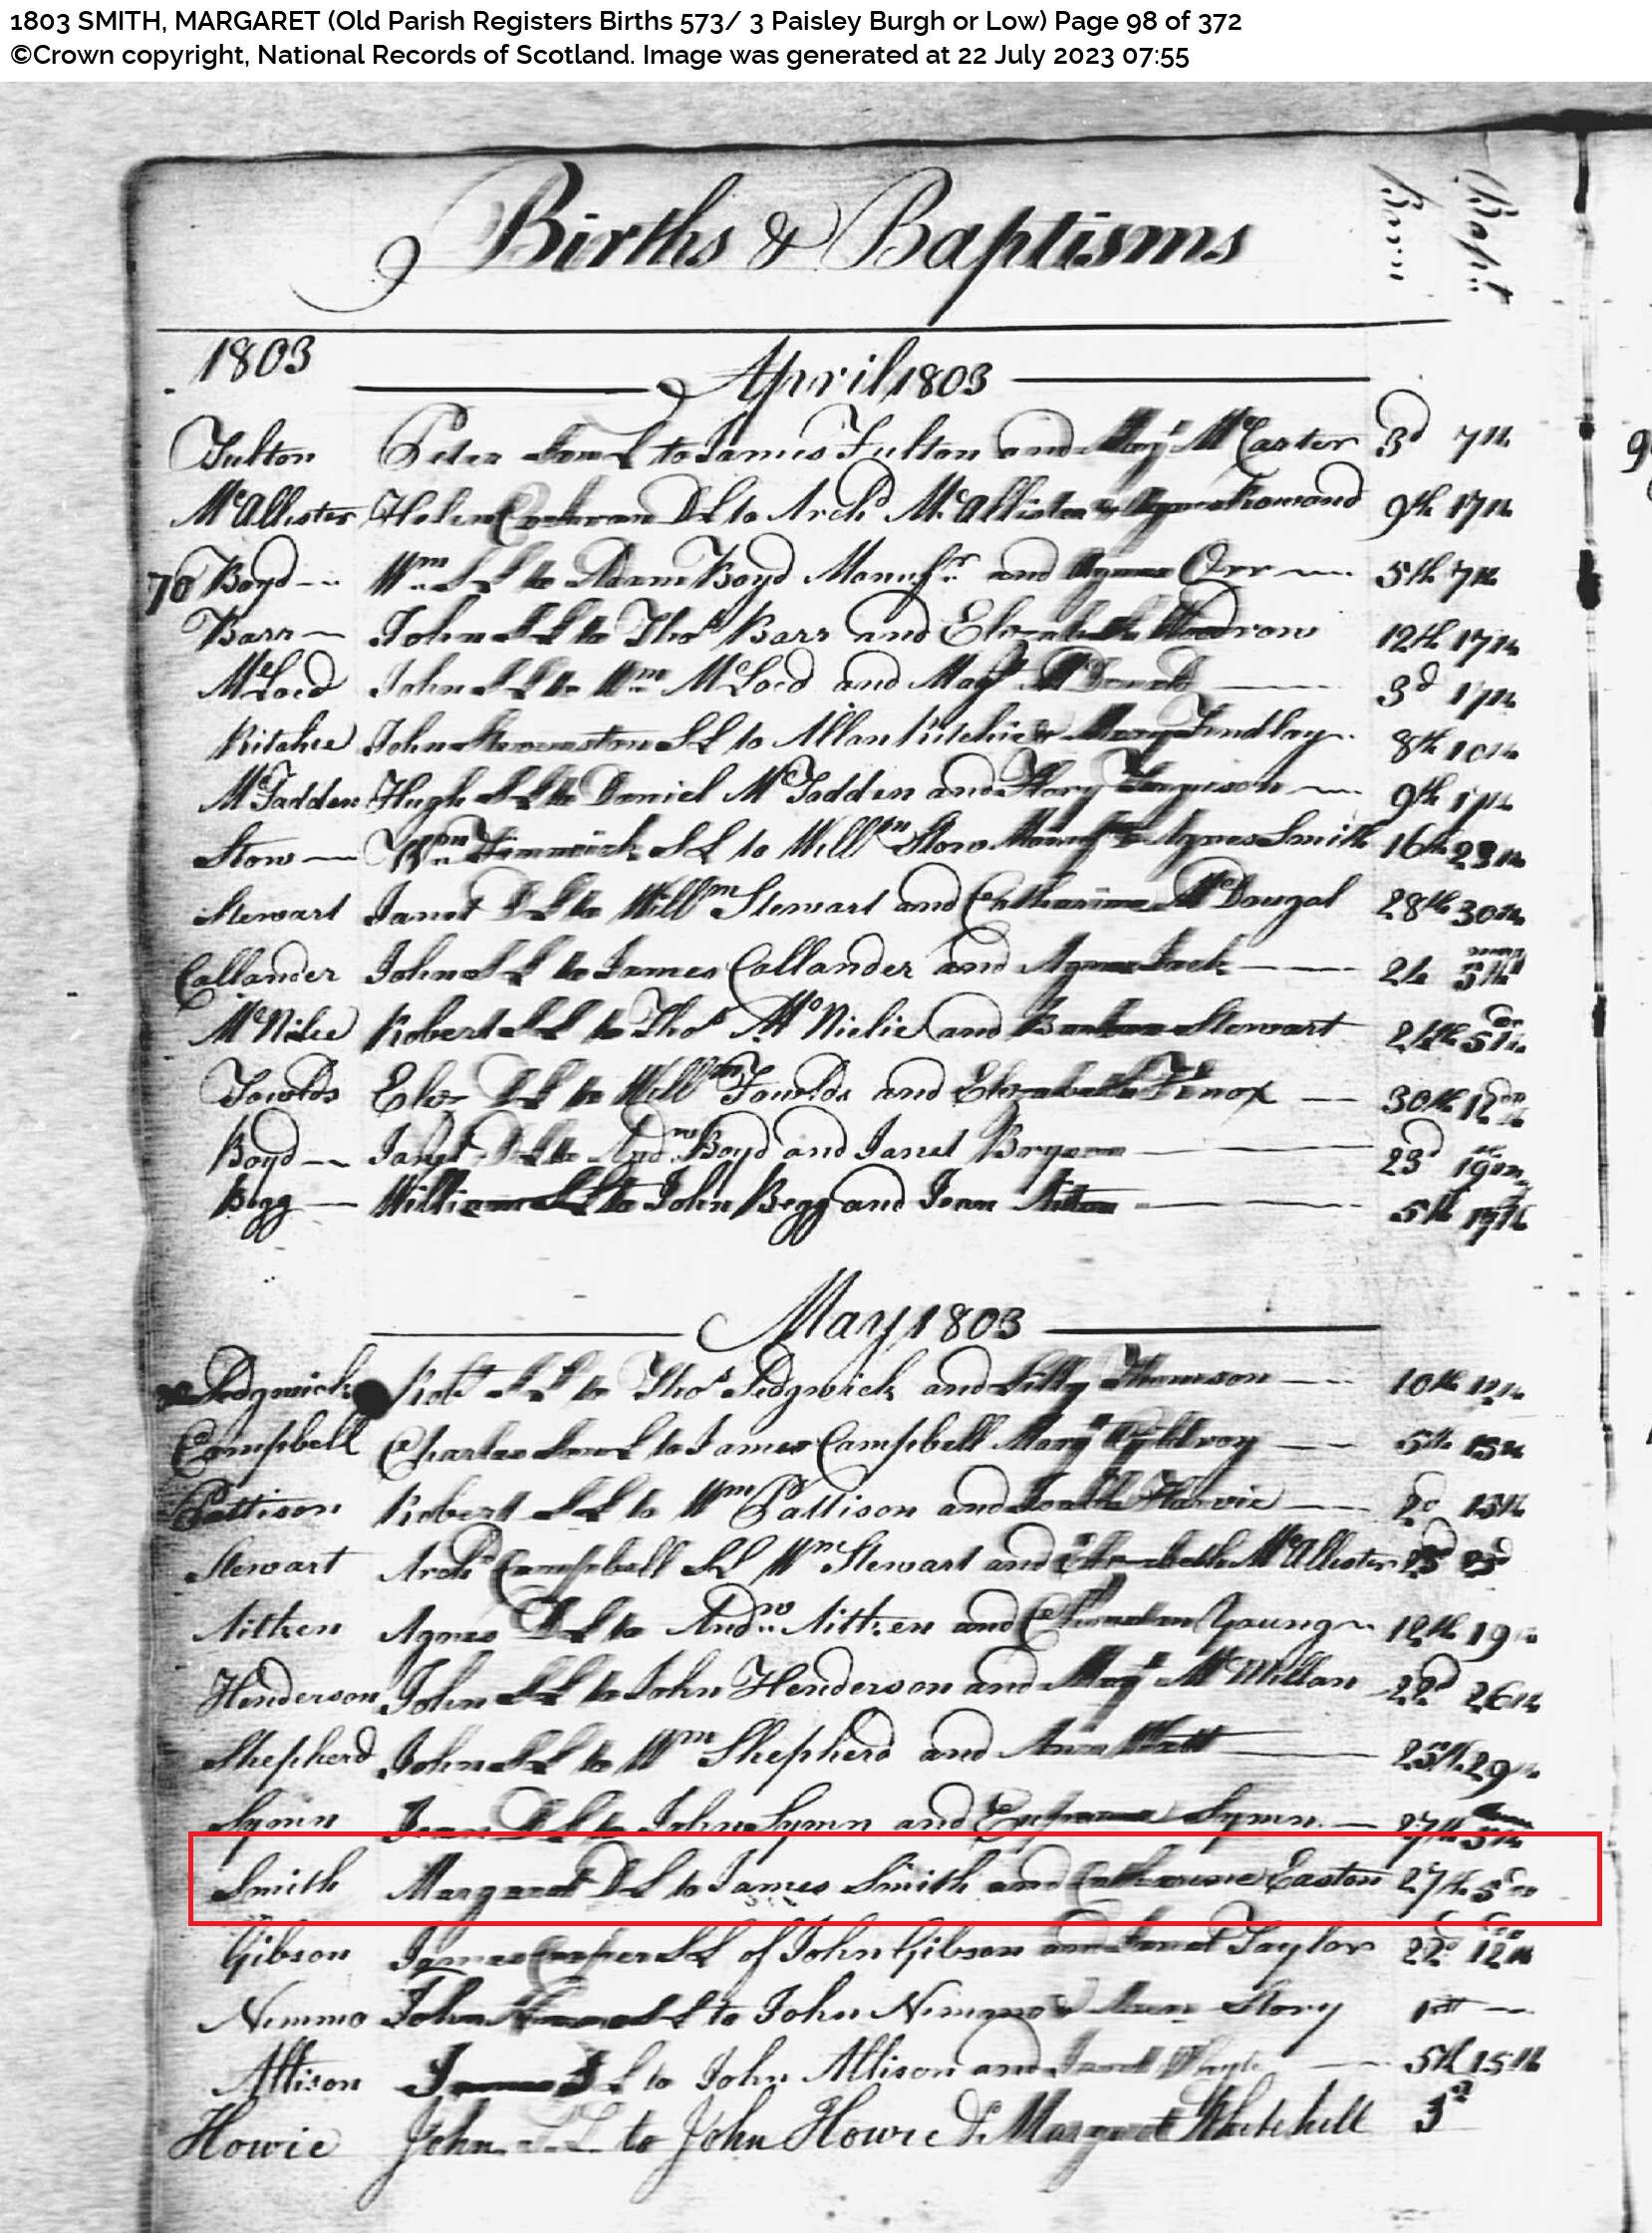 1803 SMITH, MARGARET (Old Parish Registers Births 573/ 3 Paisley Burgh or Low) Page 98 of 372
©Crown copyright, National Records of Scotland. Image was generated at 22 July 2023 07:55
Births & Baptisms Born Bapt
1803 April 1803
Fulton Peter Son L to James Fulton and Mary McCarter 3d 7th
McAllister Helen Cochran DL to Archd McAllister & 9th 17th
70 Boyd Wm SL to Adam Boyd Manufr and Agnes Orr 5th 7th
Barr John SL to Thos Barr and Elizabeth Woodrow 12th 17th
McLoed John SL to Wm McLoed and Mary McDonald 3d 17th
Ritchie John SL to Allan Ritchie & Mary Findlay 8th 10th
McFadden Hugh SL to Daniel McFadden and Mary Ferguson 9th 17th
Stow Wm SL to Willm Stow Manufr & Agnes Smith 16th 23th
Stewart Janet DL to Willm Stewart and Catharine McDougal 28th 30th
Callander John SL to James Callander and Agnes Jack 24 may 5th
McNilie Robert SL to Thos McNielie and Barbara Stewart 24th do 5th
Fowlds Eliz DL to Willm Fowlds and Elizabeth 30th 12th do
Boyd Janet DL to Andw Boyd and Janet 23d 19
Begg William SL to John Begg and Jean Aitken 5th 17th
May 1803
Sedgwick Robt SL to Thos Sedgwick and Lilly Thomson 10th 12th
Campbell Charles Son L to James Campbell Mary 5th 15th
Pattison Robert SL to Wm Pattison and Harvie 2d 15th
Stewart Archd Campbell SL Wm Stewart and Elizabeth McAllister 23d
Aitken Agnes DL to Andw Aitken and Young 12th 19
Henderson John SL to John Henderson and Mary McMillan 22d 26th
Shepherd John SL to Wm Shepherd and Ann Watt 25th 29th
Symn Jean DL to John Symn and Symn 27th June 5th
Smith Margaret DL to James Smith and Catharine Easton 27th 5 do
Gibson James SL of John Gibson and Janet Taylor 22d do 12th
Nemmo John SL to John Nemmo & Story 1st
Allison James SL to John Allison and Janet 5th 15th
Howie John SL to John Howie & Margaret Whitehill 3d